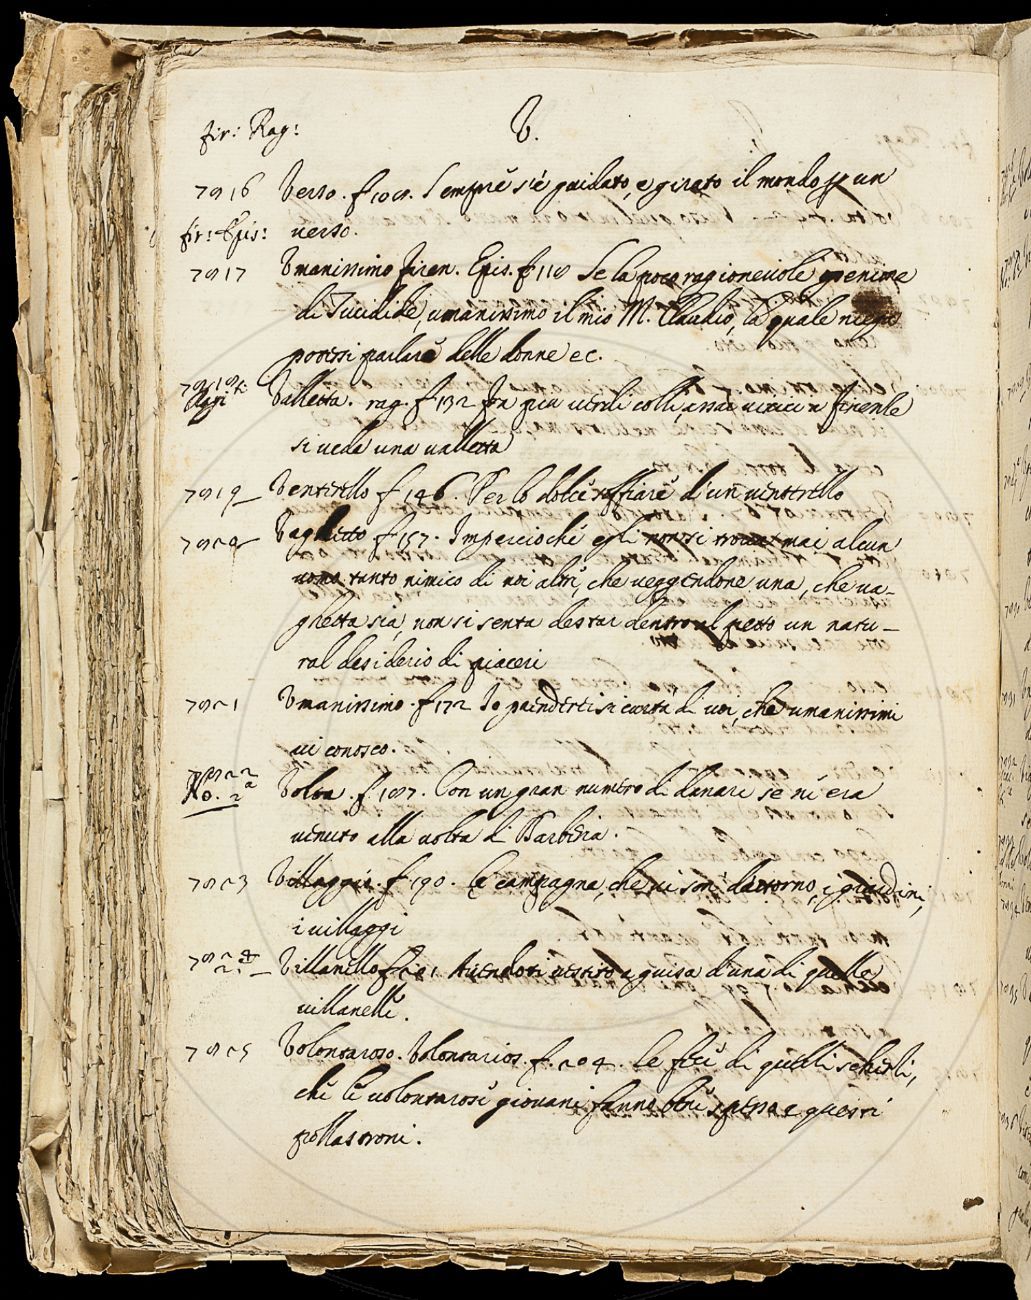 fir: Rag: V.
Verso. f. Sempre s'è guidato, e girato il mondo p un
fir: Epis: verso.
Umanissimo firen. Epis. f. Se la poco ragionevole
di Tucidide, umanissimo il mio M. Claudio, la quale niega
potersi parlare delle donne ec.
Valletta. rag. f 132 In più utili colli, assai vicin a firenze
si veda una valletta
Venticello f 146. Per lo dolce soffiare d'un venticello
Vaghetto f 157. Impercioché egli non si trova mai alcun
uomo tanto nimico di noi altri, che veggendone una, che va-
ghetta sia, non si senta destar dentro al petto un natu-
ral desiderio di piaceri
Umanissimo. f 172 Io sicurtà di voi, che umanissimi
vi conosco.
No. 2ª Volta. f 187. Con un gran numero di danari se n'era
venuto alla volta di Barbiria.
Villaggio. f 190. La campagna, che vi son dattorno, i giardini,
i villaggi
Villanello f 201. Avendosi vestito a guisa d'una di quelle
villanelle.
Volontaroso. Volontarios. f. 204. Le di quelli
che le volontarose giovani fanno bene spesso a questi
pollastroni.